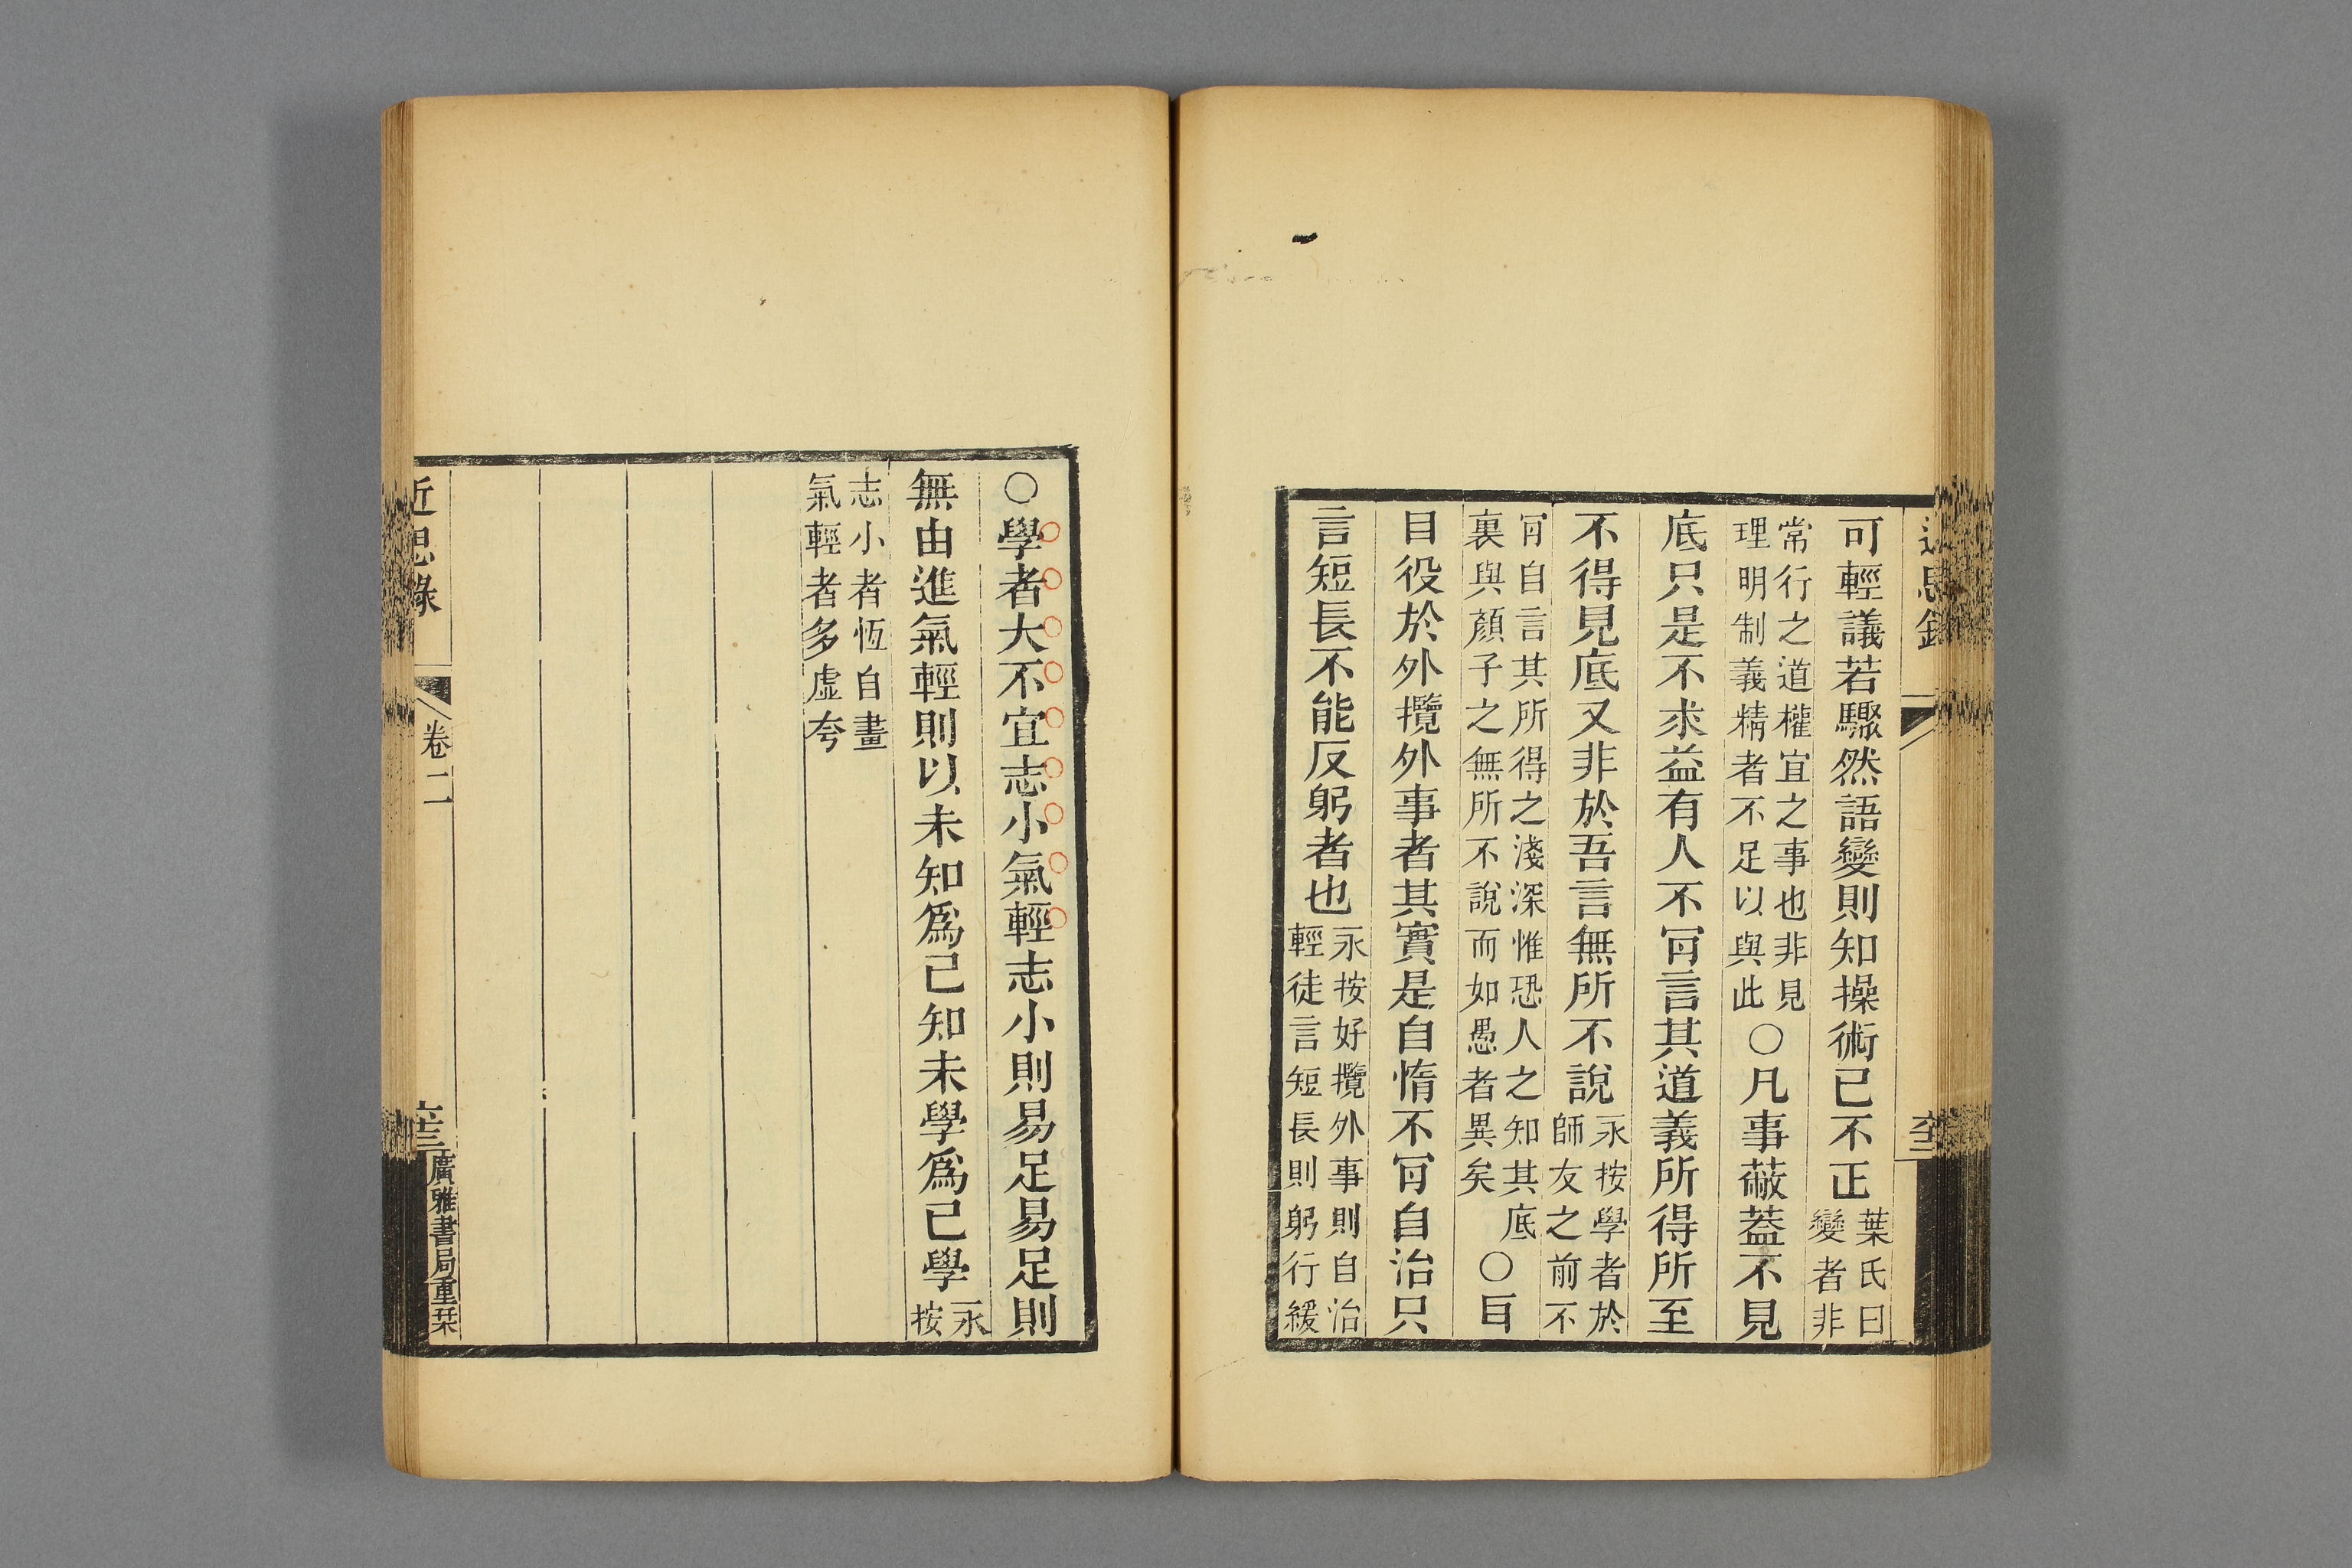 近思錄
可輕議若驟然語變則知操術已不正葉氏曰變者非
常行之道權宜之事也非見理明制義精者不足以與此〇凡事蔽葢不見
底只是不求益有人不肎言其道義所得所至
不得見底又非於吾言無所不說永按學者於師友之前不
肎自言其所得之淺深惟恐人之知其底裏與顏子之無所不說而如愚者異矣〇耳
目役於外攬外事者其實是自惰不肎自治只
言短長不能反躬者也永按好攬外事則自治輕徒言短長則躬行緩
〇學者大不宜志小氣輕志小則易足易足則
無由進氣輕則以未知爲已知未學爲已學永按
志小者恆自畫氣輕者多虛夸
近思錄
卷二
六十三
廣雅書局重栞